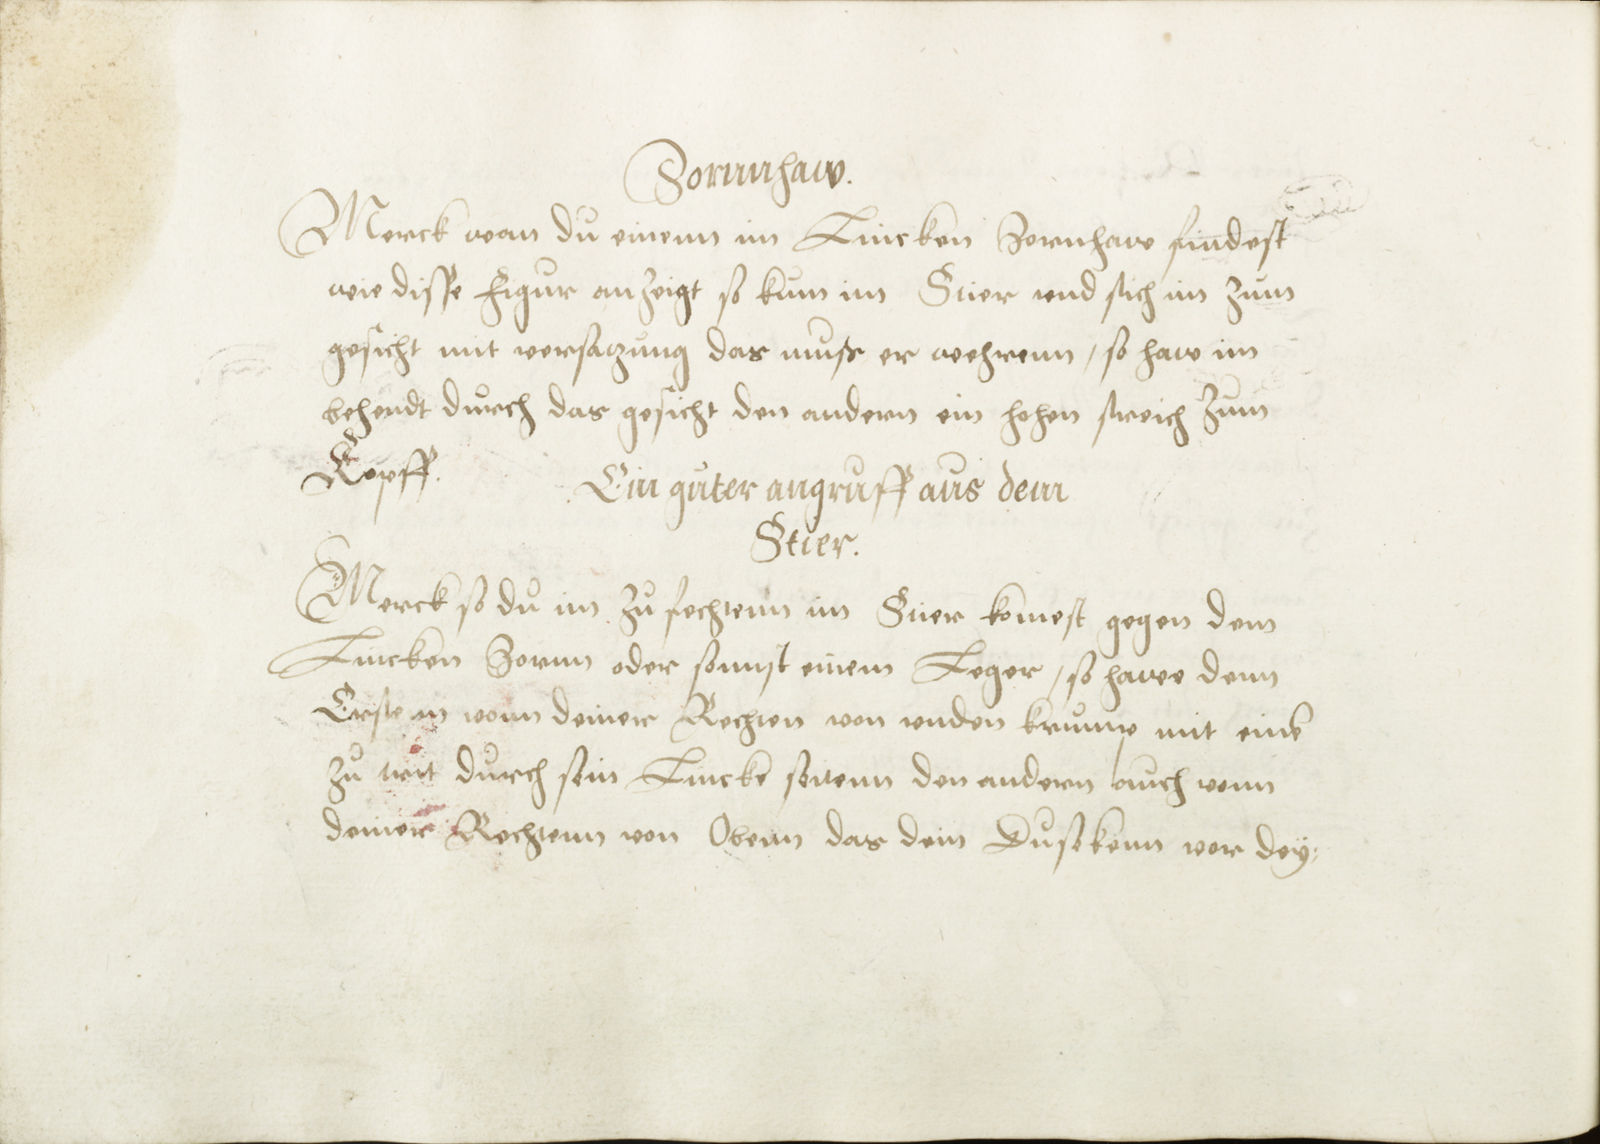 Zornnhaw.
Merck wan du einenn im Lincken Zornhaw findest
wie disse figur anzeigt so kum im Stier vnd stich im zum
gesicht mit versatzung das muss er wehrenn / so haw im
behendt durch das gesicht den andern ein hohen streich zum
Kopff.
Ein guter angruff aus dem
Stier.
Merck so du im zu fechtenn im Stier komest gegen dem
Lincken Zornn oder sonnst einem Leger / so hawe denn
Ersten vonn deiner Rechten von vnden krump mit eine
zu trit durch sein Lincke seitenn den andern auch vonn
deiner Rechtenn von Obenn das dein Dusekenn vor dey: